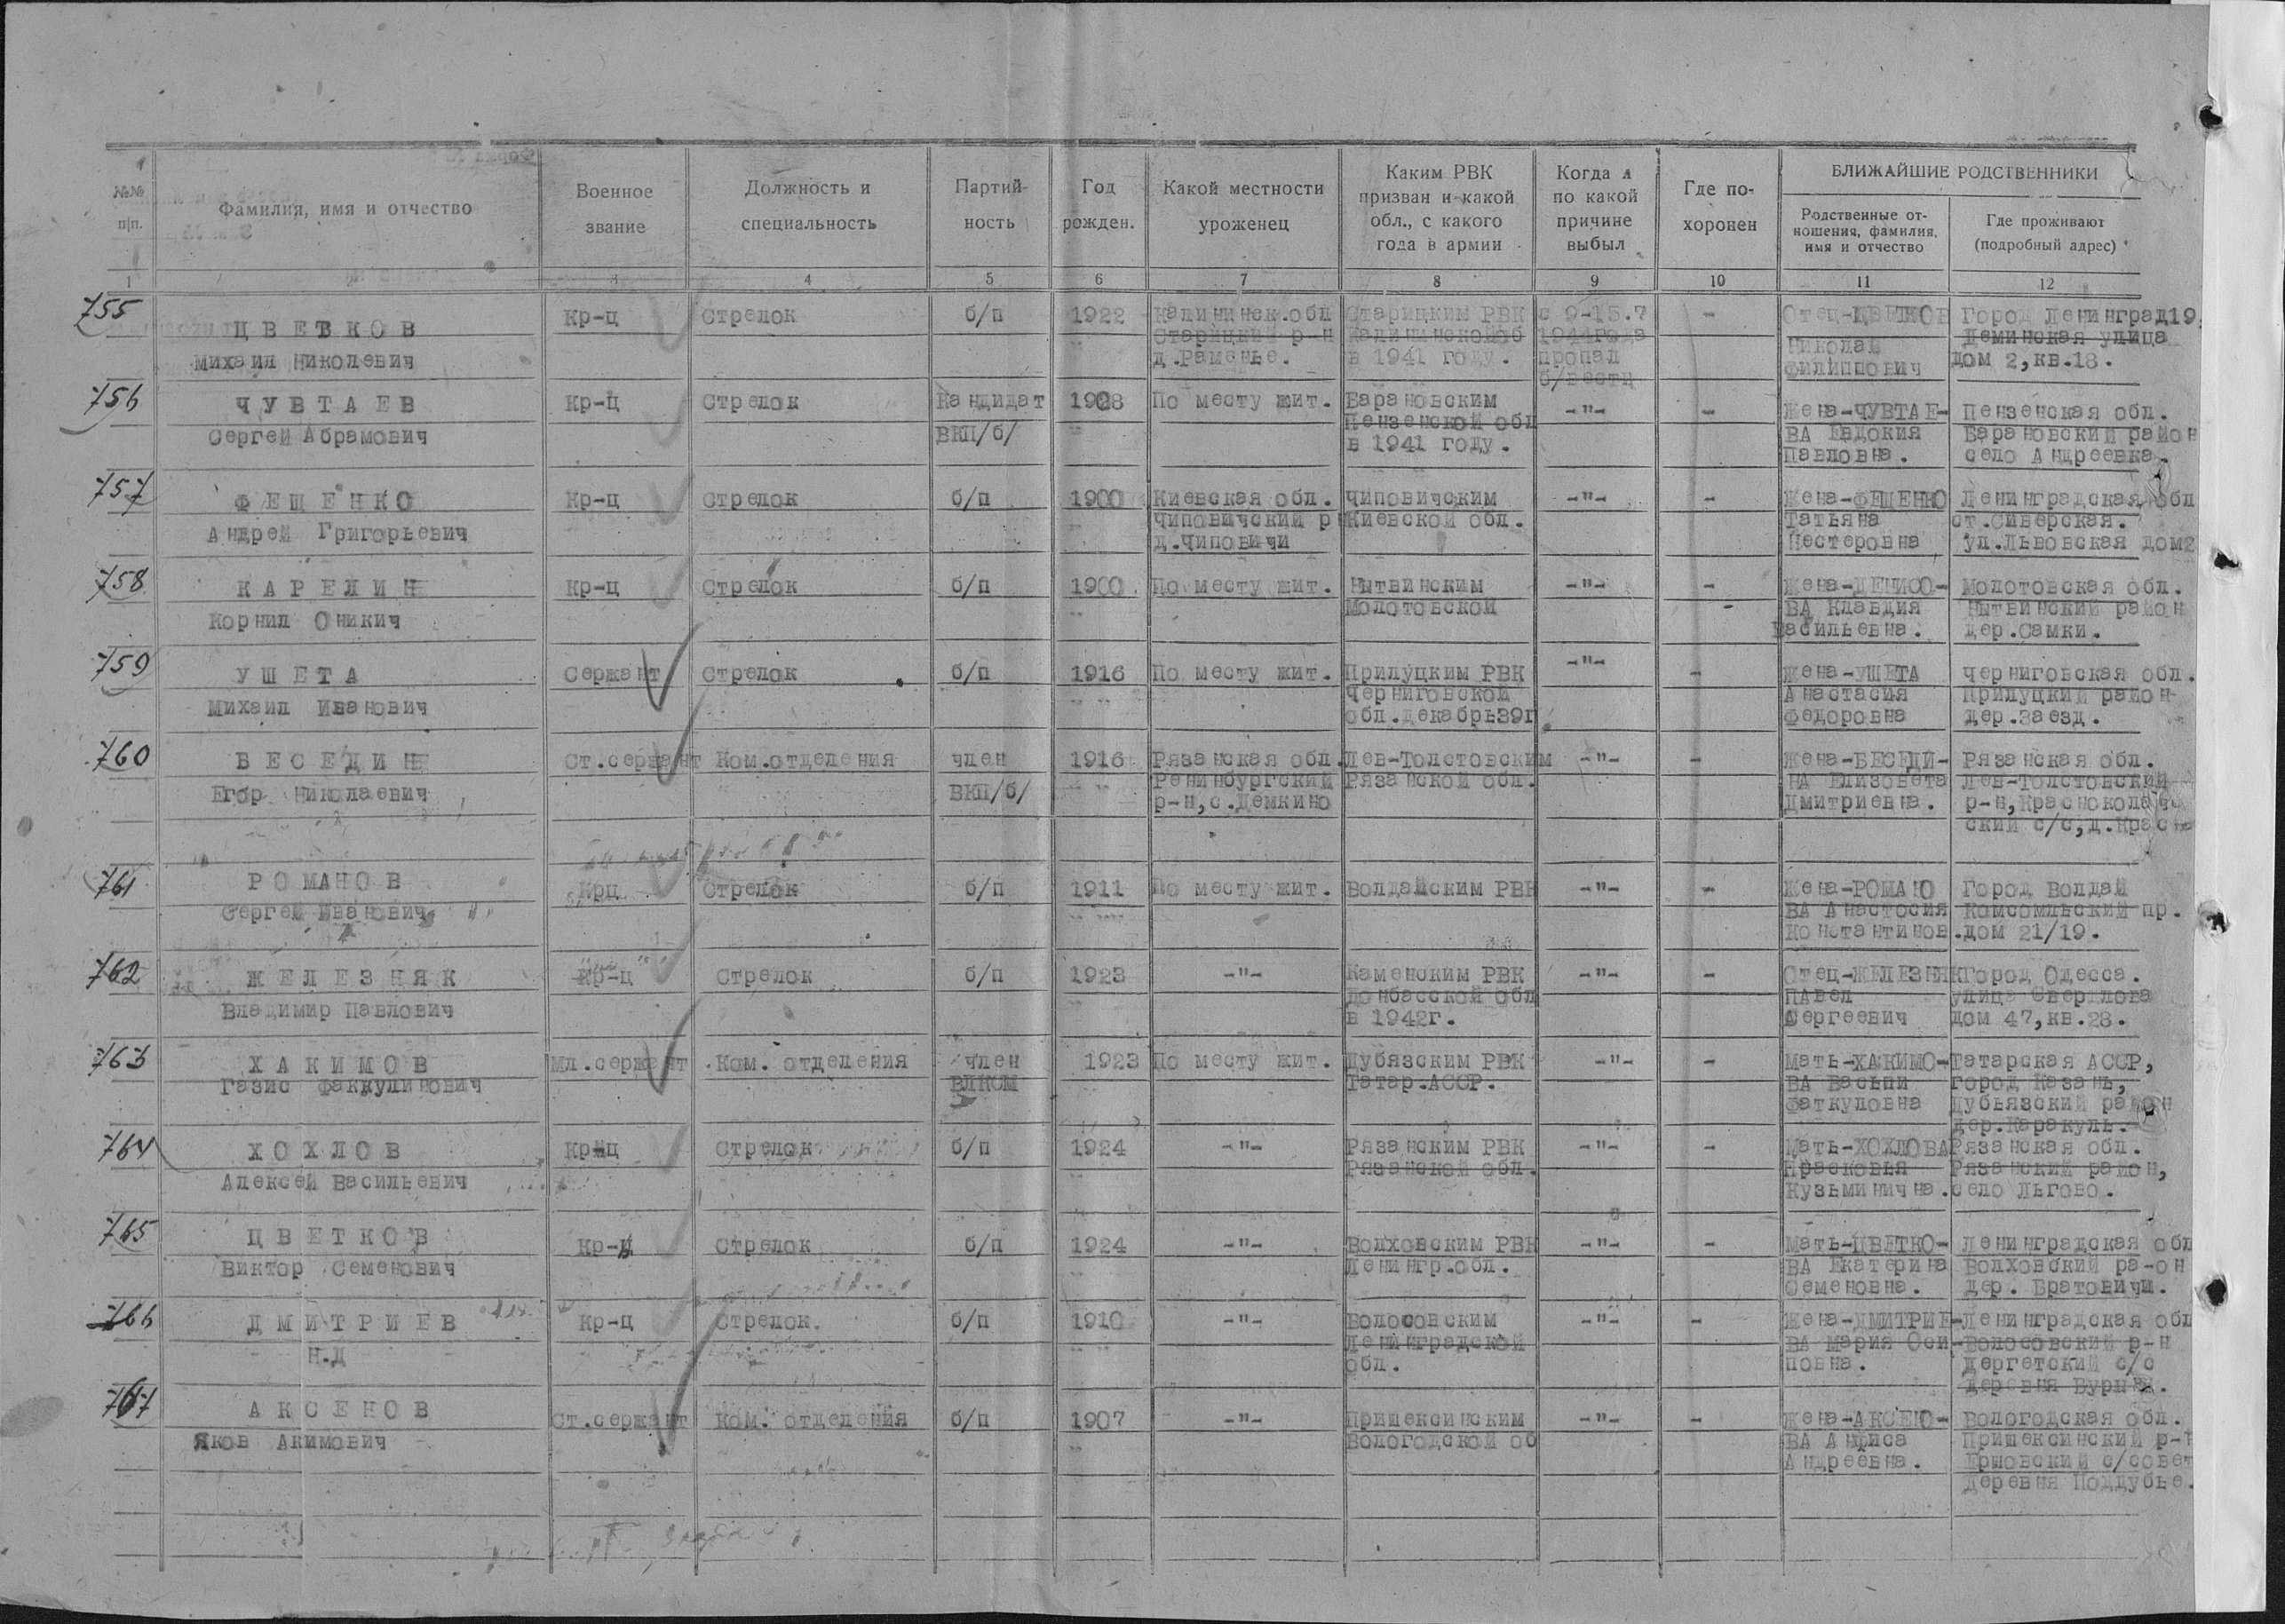 №№ п|п.
Фамилия, имя и отчество
Военное звание
Должность и специальность
Партий-ность
Год рожден.
Какой местности уроженец
Каким РВК призван и какой обл., с какого года в армии
Когда и по какой причине выбыл
Где по-хоронен
БЛИЖАЙШИЕ РОДСТВЕННИКИ
Родственные от-ношения, фамилия, имя и отчество
Где проживают (подробный адрес)
1 2 3 4 5 6 7 8 9 10 11 12
755 ЦВЕТКОВ Кр-ц Стрелок б/п 1922 Калининск.обл Старицким РВК с 9-15.7 - Отец-ЦВЕТКОВ Город Ленинград19
Старицкий р-н Калининской об 1944года Деминская улица
Михаил Николевич д.Раменье. в 1941 году. пропал Николай дом 2,кв.18.
б/вести Филиппович
756 ЧУВТАЕВ Кр-ц Стрелок Кандидат 1908 По месту жит. Барановским -"- - Жена-ЧУВТАЕ- Пензенская обл.
Сергей Абрамович ВКП/б/ Пензенской обл ВА Евдокия Барановский район
в 1941 году. Павловна. село Андреевка.
757 ФЕЩЕНКО Кр-ц Стрелок б/п 1900 Киевская обл. Чиповичским -"- - Жена-ФЕЩЕНКО Ленинградская обл
Андрей Григорьевич Чиповичский р Киевской обл. Татьяна ст.Сиверская.
д.Чиповичи Нестеровна ул.Львовская дом2
758 КАРЕЛИН Кр-ц Стрелок б/п 1900 По месту жит. Нытвинским -"- - Жена-ДЕНИСО- Молотовская обл.
Корнил Оникич Молотовской - ВА Клавдия Нытвинский район
Васильевна. дер.Самки.
759 УШЕТА Сержант Стрелок б/п 1916 По месту жит. Прилуцким РВК -"- - Жена-УШЕТА Черниговская обл.
Михаил Иванович Черниговской Анастасия Прилуцкий район
обл.декабрь39г Федоровна дер.Заезд.
760 БЕСЕДИН Ст.сержант Ком.отделения член 1916 Рязанская обл. Лев-Толстовским -"- - Жена-БЕСЕДИ- Рязанская обл.
Егор Николаевич ВКП/б/ Ренинбургский Рязанской обл. НА Елизовета Лев-Толстовский
р-н,с.Демкино Дмитриевна. р-н,Красноколач
ский с/с,д.Крас
761 РОМАНОВ Крц Стрелок б/п 1911 По месту жит. Волдайским РВК -"- - Жена-РОМАНО Город Волдай
Сергей Иванович ВА Анастосия Комсомльский пр.
Константинов. дом 21/19.
762 ЖЕЛЕЗНЯК Кр-ц Стрелок б/п 1923 -"- Каменским РВК -"- - Отец-ЖЕЛЕЗНЯК Город Одесса.
Владимир Павлович Донбасской обл ПАвел улица Свердлова
в 1942г. Сергеевич дом 47,кв.28.
763 ХАКИМОВ Мл.сержант Ком. отделения член 1923 По месту жит. Дубязским РВК -"- - Мать-ХАКИМО- Татарская АССР,
Газис Факкулинович ВЛКСМ Татар.АССР. ВА Васьпи город Казань,
Фаткуловна Дубьязский район
дер.Каракуль.
764 ХОХЛОВ Кр-ц Стрелок б/п 1924 -"- Рязанским РВК -"- - Мать-ХОХЛОВА Рязанская обл.
Алексей Васильевич Рязанской обл. Прасковья Рязанский район,
Кузьминична. село Льгово.
765 ЦВЕТКОВ Кр-ц Стрелок б/п 1924 -"- Волховским РВК -"- - Мать-ЦВЕТКО- Ленинградская обл
Виктор Семенович Ленингр.обл. ВА Екатерина Волховский ра-он
Семеновна. дер. Братовичи.
766 ДМИТРИЕВ Кр-ц Стрелок. б/п 1910 -"- Волосовским -"- - Жена-ДМИТРИЕ- Ленинградская обл
Н.Д Ленинградской ВА Мария Оси- Волосовский р-н
обл. повна. Дергетский с/с
деревня Бурные.
767 АКСЕНОВ Ст.сержант Ком. отделения б/п 1907 -"- Пришексинским -"- - Жена-АКСЕНО- Вологодская обл.
Яков Акимович Вологодской об ВА Анфиса Пришексинский р-н
Андреевна. Ершовский с/совет
деревня Поддубье.